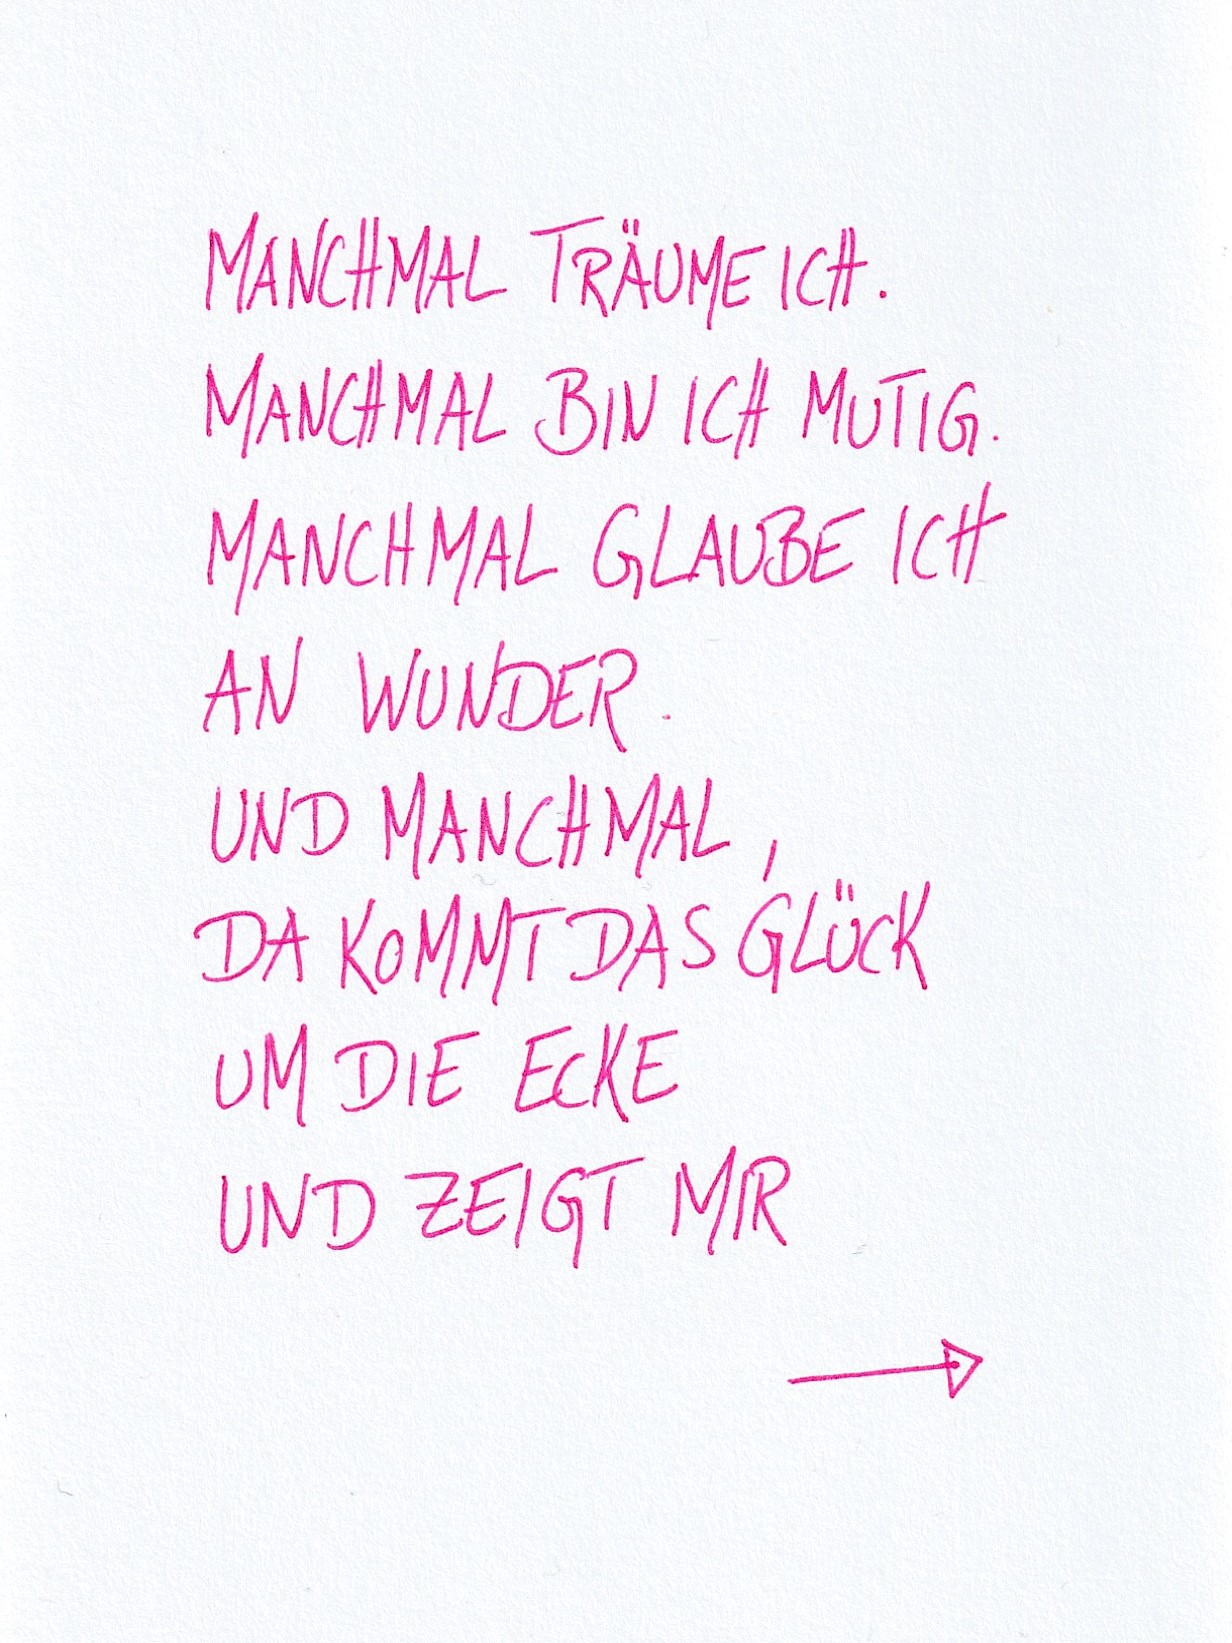 MANCHMAL TRÄUME ICH.
MANCHMAL BIN ICH MUTIG.
MANCHMAL GLAUBE ICH
AN WUNDER.
UND MANCHMAL,
DA KOMMT DAS GLÜCK
UM DIE ECKE
UND ZEIGT MIR